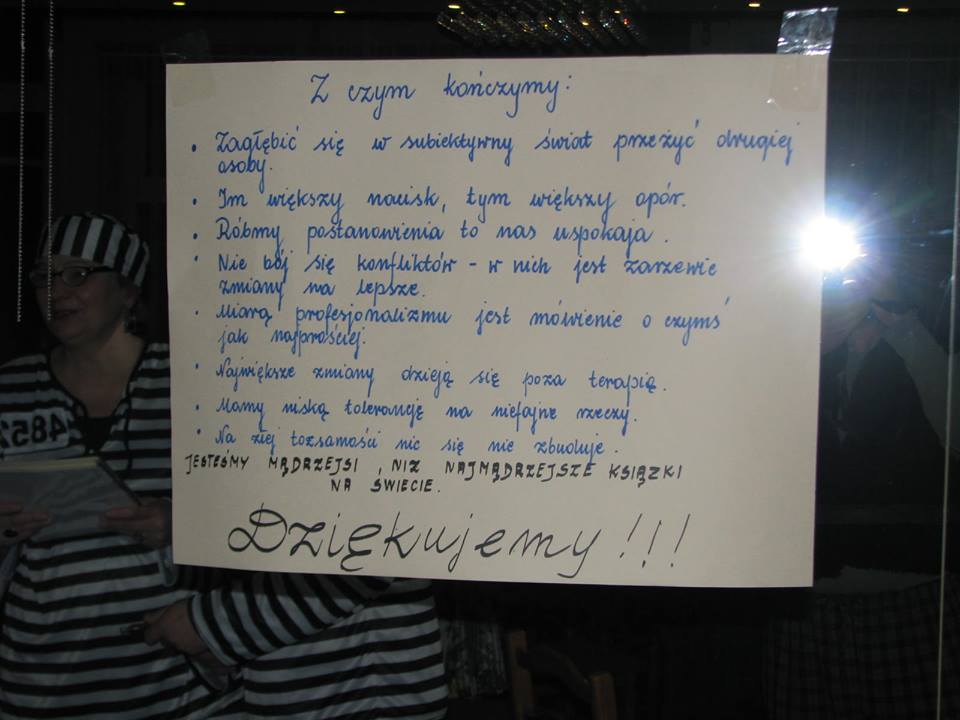 Z czym kończymy:
• Zagłębić się w subiektywny świat przeżyć drugiej
osoby.
• Im większy nacisk, tym większy opór.
• Róbmy postanowienia to nas uspokaja.
• Nie bój się konfliktów - w nich jest zarzewie
zmiany na lepsze.
• Miarą profesjonalizmu jest mówienie o czymś
jak najprościej.
• Największe zmiany dzieją się poza terapią.
• Mamy niską tolerancję na niefajne rzeczy.
• Na złej tożsamości nic się nie zbuduje.
JESTEŚMY MĄDRZEJSI, NIŻ NAJMĄDRZEJSZE KSIĄŻKI
NA ŚWIECIE.
Dziękujemy!!!